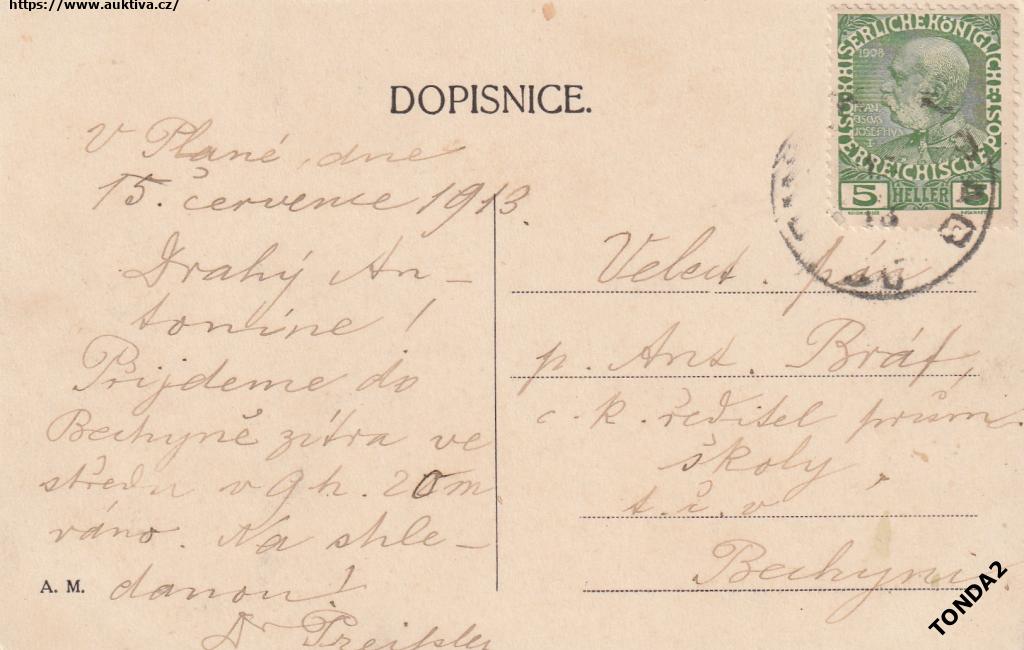 https://www.auktiva.cz/
DOPISNICE.
V Plané, dne
15. července 1913.
Drahý An-
toníne!
Přijdeme do
Bechyně zítra ve
středu v 9 h. 20 m
ráno. Na shle-
danou!
Dr
A. M.
KAISERLICHE KÖNIGLICHE
ÖSTERREICHISCHE POST
1908
FRAN
CISCVS
JOSEPHVS
I
5 HELLER 5
Velect. pán
p. Ant. Bráf,
c. k. ředitel prům.
školy,
t. č. v
Bechyni.
TONDA2